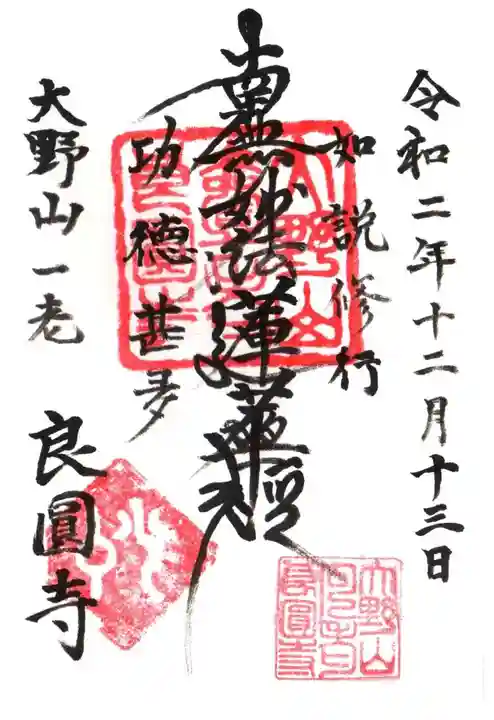 令和二年十二月十三日
如説修行
南無妙法蓮華経
功徳甚多
大野山一老
良圓寺
大野山